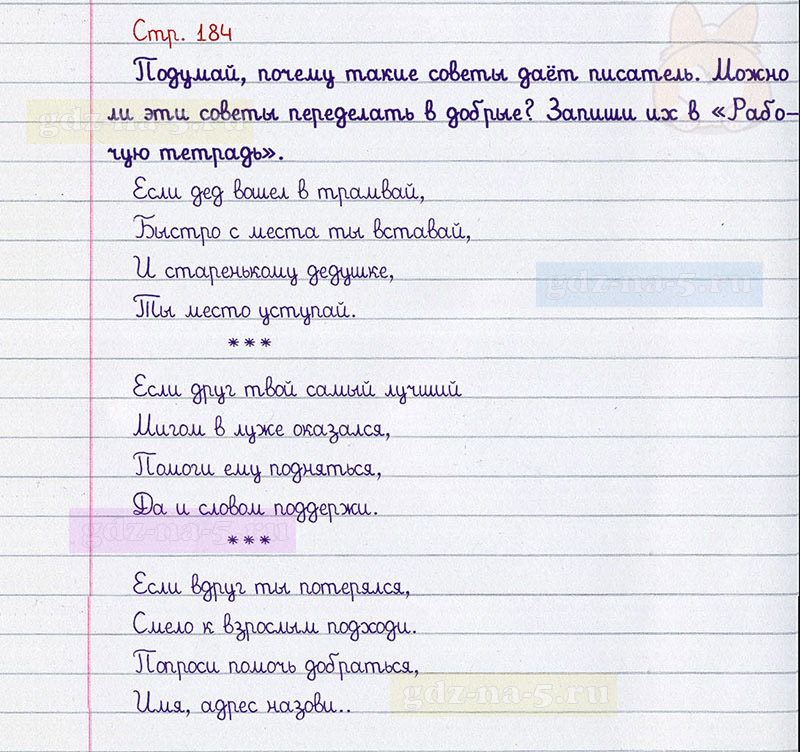 Стр. 184
Подумай, почему такие советы даёт писатель. Можно
ли эти советы переделать в добрые? Запиши их в «Рабо-
чую тетрадь».
gdz-na-5.ru
Если дед вошел в трамвай,
Быстро с места ты вставай,
И старенькому дедушке,
gdz-na-5.ru
Ты место уступай.
***
Если друг твой самый лучший
Мигом в луже оказался,
Помоги ему подняться,
Да и словом поддержи.
gdz-na-5.ru
***
Если вдруг ты потерялся,
Смело к взрослым подходи.
Попроси помочь добраться,
gdz-na-5.ru
Имя, адрес назови..